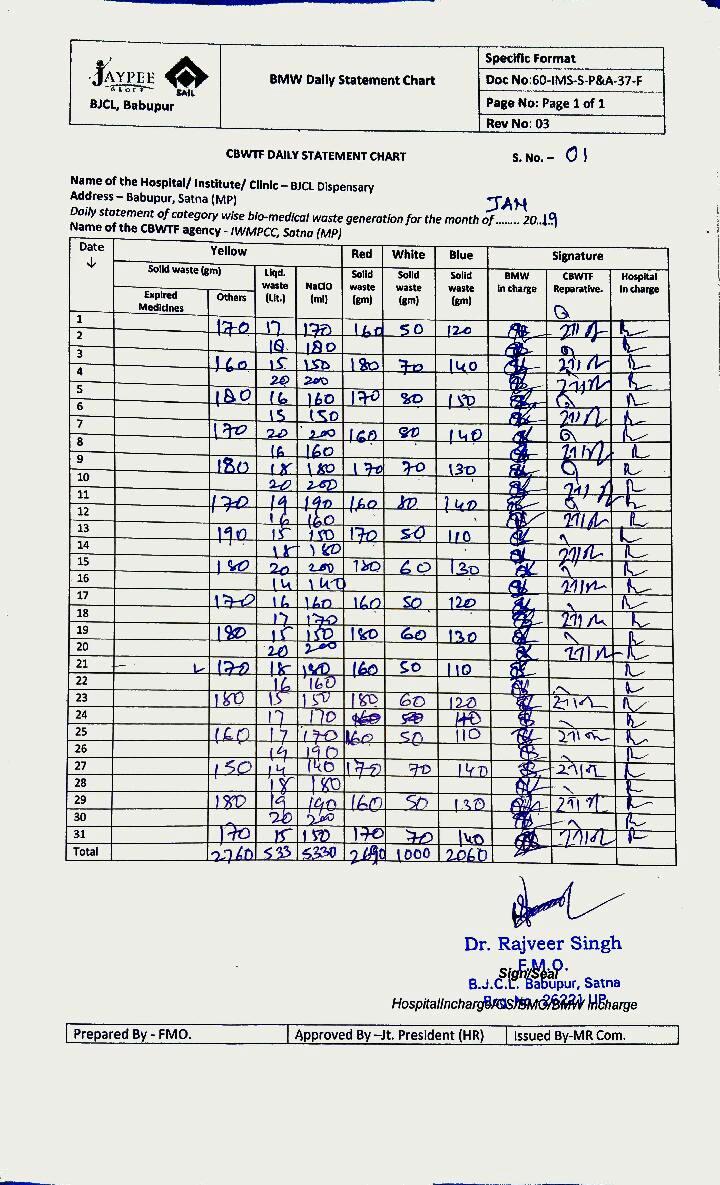 JAYPEE
GROUP
SAIL
BJCL, Babupur
BMW Daily Statement Chart
Specific Format
Doc No:60-IMS-S-P&A-37-F
Page No: Page 1 of 1
Rev No: 03
CBWTF DAILY STATEMENT CHART S. No. – 01
Name of the Hospital/ Institute/ Clinic – BJCL Dispensary
Address – Babupur, Satna (MP)
Daily statement of category wise bio-medical waste generation for the month of JAN ........ 20..19
Name of the CBWTF agency - IWMPCC, Satna (MP)
Date ↓ Yellow Red White Blue Signature
Solid waste (gm) Liqd. waste (Lit.) NaClO (ml) Solid waste (gm) Solid waste (gm) Solid waste (gm) BMW in charge CBWTF Reparative. Hospital in charge
Expired Medicines Others
1 170 17 170 160 50 120
2 18 180
3 160 15 150 180 70 140
4 20 200
5 180 16 160 170 80 150
6 15 150
7 170 20 200 160 80 140
8 16 160
9 180 18 180 170 70 130
10 20 200
11 170 19 190 160 80 140
12 16 160
13 190 15 150 170 50 110
14 18 180
15 180 20 200 180 60 130
16 14 140
17 170 16 160 160 50 120
18 17 170
19 180 15 150 180 60 130
20 20 200
21 170 18 180 160 50 110
22 16 160
23 180 15 150 180 60 120
24 17 170
25 160 17 170 160 50 110
26 19 190
27 150 14 140 170 70 140
28 18 180
29 180 19 190 160 50 130
30 20 200
31 170 15 150 170 70 140
Total 2760 533 5330 2690 1000 2060
Dr. Rajveer Singh
F.M.O.
Sign/Seal
B.J.C.L. Babupur, Satna
HospitalIncharge/CS/BMO/BMW Incharge
Prepared By - FMO. Approved By –Jt. President (HR) Issued By-MR Com.